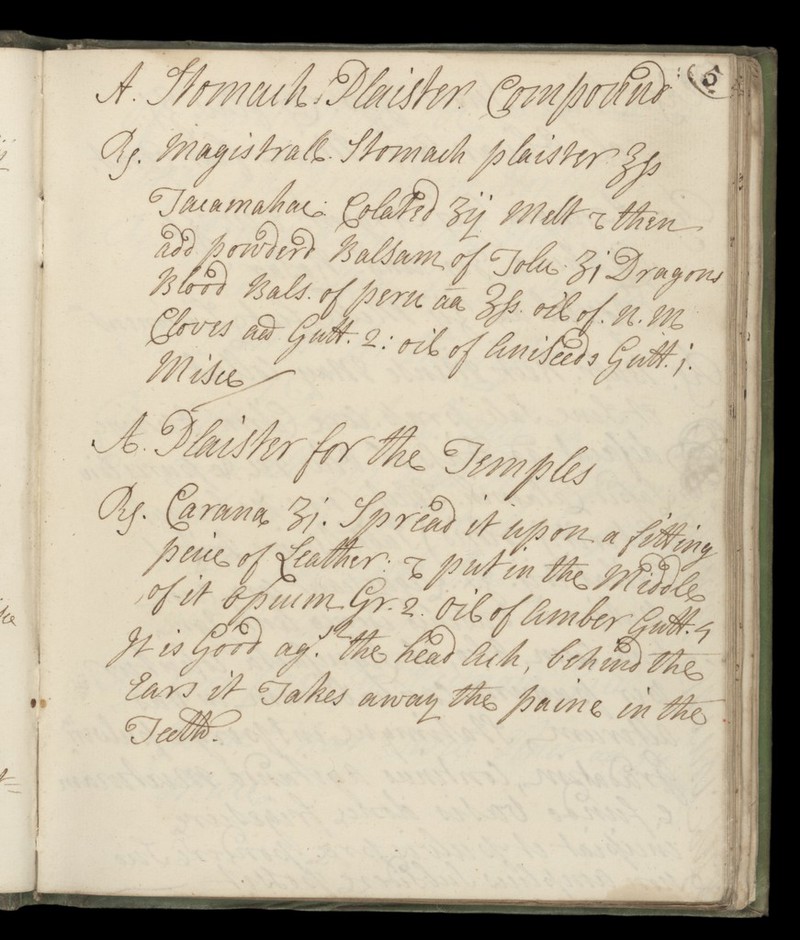 A. Stomach Plaister. Compound
5
Rx. Magistrall. Stomach plaister ℥ß
Tacamahac: Colated ʒij Melt & then
add powderd Balsam of Tolu ʒj Dragons
Blood Bals. of peru aa ʒß. oil of. N. M
Cloves aā Gutt. 2: oil of Aniseeds Gutt. j.
Misce
A. Plaister for the Temples
Rx. Carana ʒj. Spread it upon a fitting
peice of Leather: & put in the Middle
of it Opium Gr. 2. oil of Amber Gutt.
It is Good agt. the head Ach, behind the
Ears it Takes away the paine in the
Teeth.